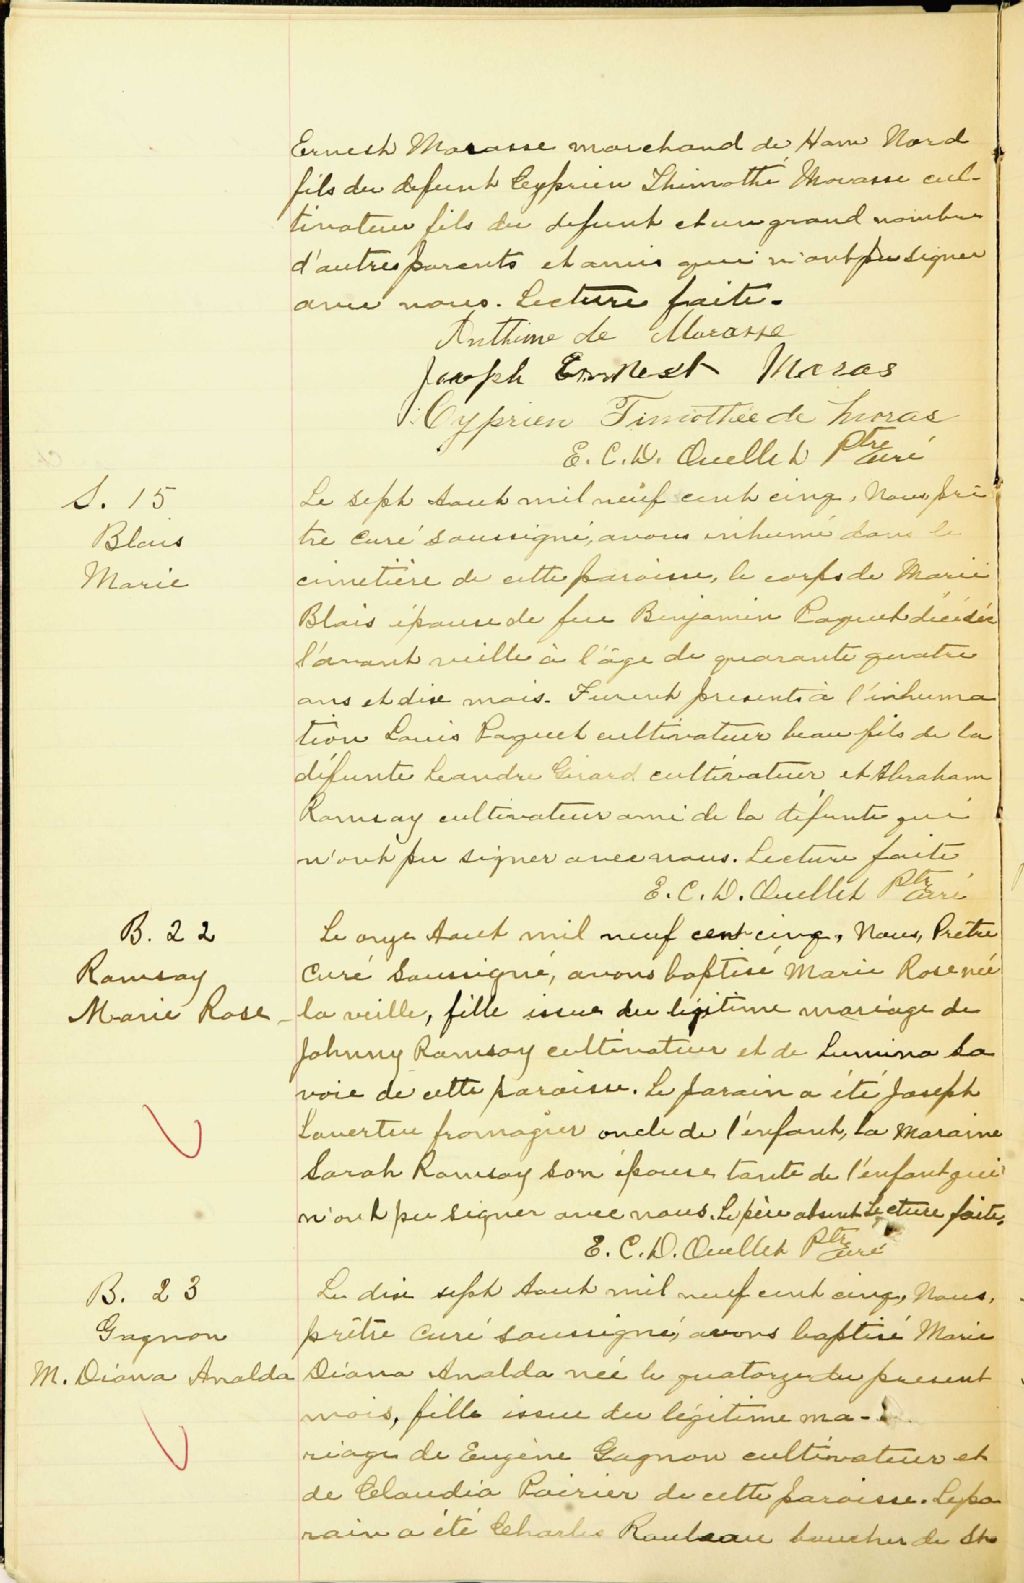 Ernest Marasse marchand de Ham Nord
fils du defunt Cyprien Thimothé Morasse cul-
tivateur fils du defunt et un grand nombre
d'autres parents et amis qui n'ont pu signer
avec nous. Lecture faite.
Anthime de Morasse
Joseph Ernest Moras
Cyprien Timothée de Moras
E. C. D. Ouellet Ptre curé
S. 15
Blais
Marie
Le sept Aout mil neuf cent cinq, Nous, prê
tre curé soussigné, avons inhumé dans le
cimetière de cette paroisse, le corps de Marie
Blais épouse de feu Benjamin Paquet décédée
l'avant veille à l'âge de quarante quatre
ans et dix mois. Furent présents à l'inhuma
tion Louis Paquet cultivateur beau fils de la
défunte Leandre Girard cultivateur et Abraham
Ramsay cultivateur ami de la défunte qui
n'ont pu signer avec nous. Lecture faite
E. C. D. Ouellet Ptre curé
B. 22
Ramsay
Marie Rose
Le onze Aout mil neuf cent cinq, Nous, Prêtre
Curé Soussigné, avons baptisé Marie Rose née
la veille, fille issue du légitime mariage de
Johnny Ramsay cultivateur et de Lumina Sa
voie de cette paroisse. Le parain a été Joseph
Lavertu fromagier oncle de l'enfant, la Maraine
Sarah Ramsay son épouse tante de l'enfant qui
n'ont pu signer avec nous. Le père absent Lecture faite.
E. C. D. Ouellet Ptre curé
B. 23
Gagnon
M. Diana Analda
Le dix sept Aout mil neuf cent cinq, Nous,
prêtre curé soussigné, avons baptisé Marie
Diana Analda née le quatorze du present
mois, fille issue du légitime ma-
riage de Eugène Gagnon cultivateur et
de Claudia Poirier de cette paroisse. Le pa
rain a été Charles Rouleau boucher de St